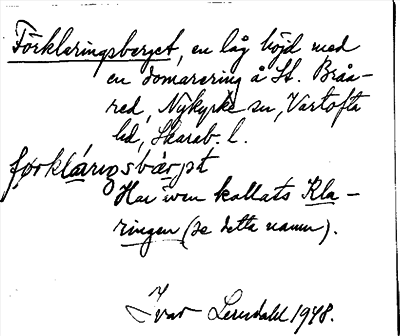 Förklaringsberget, en låg höjd med
en domarering å St. Bråa-
red, Nykyrke sn, Vartofta
hd, Skarab. l.
førkláriŋsbàrjət
Har även kallats Kla-
ringen (se detta namn).
Ivar Lundahl 1948.